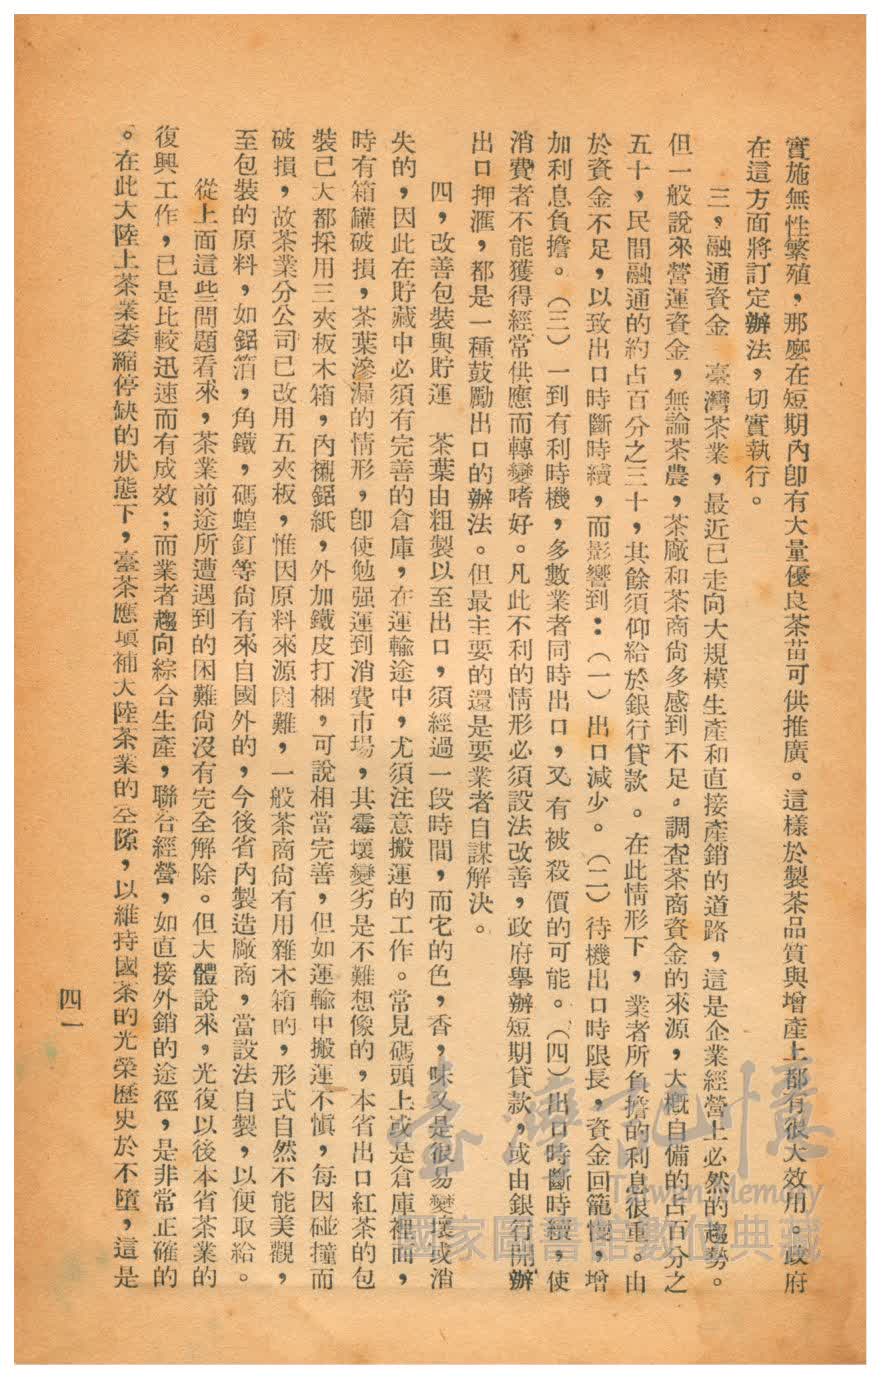 實施無性繁殖，那麼在短期內卽有大量優良茶苗可供推廣。這樣於製茶品質與增產上都有很大效用。政府
在這方面將訂定辦法，切實執行。
三，融通資金　臺灣茶業，最近已走向大規模生產和直接產銷的道路，這是企業經營上必然的趨勢。
但一般說來營運資金，無論茶農，茶廠和茶商尙多感到不足。調查茶商資金的來源，大概自備的占百分之
五十，民間融通的約占百分之三十，其餘須仰給於銀行貸款。在此情形下，業者所負擔的利息很重。由
於資金不足，以致出口時斷時續，而影響到：（一）出口減少。（二）待機出口時限長，資金回籠慢，增
加利息負擔。（三）一到有利時機，多數業者同時出口，又有被殺價的可能。（四）出口時斷時續，使
消費者不能獲得經常供應而轉變嗜好。凡此不利的情形必須設法改善，政府舉辦短期貸款，或由銀行開辦
出口押滙，都是一種鼓勵出口的辦法。但最主要的還是要業者自謀解決。
四，改善包裝與貯運　茶葉由粗製以至出口，須經過一段時間，而它的色，香，味又是很易變壞或消
失的，因此在貯藏中必須有完善的倉庫，在運輸途中，尤須注意搬運的工作。常見碼頭上或是倉庫裡面，
時有箱罐破損，茶葉滲漏的情形，卽使勉强運到消費市場，其霉壞變劣是不難想像的，本省出口紅茶的包
裝已大都採用三夾板木箱，內襯鋁紙，外加鐵皮打梱，可說相當完善，但如運輸中搬運不愼，每因碰撞而
破損，故茶業分公司已改用五夾板，惟因原料來源困難，一般茶商尙有用雜木箱的，形式自然不能美觀，
至包裝的原料，如鋁箔，角鐵，碼蝗釘等尙有來自國外的，今後省內製造廠商，當設法自製，以便取給。
從上面這些問題看來，茶業前途所遭遇到的困難尙沒有完全解除。但大體說來，光復以後本省茶業的
復興工作，已是比較迅速而有成效；而業者趨向綜合生產，聯合經營，如直接外銷的途徑，是非常正確的
。在此大陸上茶業萎縮停缺的狀態下，臺茶應塡補大陸茶業的空隙，以維持國茶的光榮歷史於不墮，這是
四一
臺灣記憶
Taiwan Memory
國家圖書館數位典藏